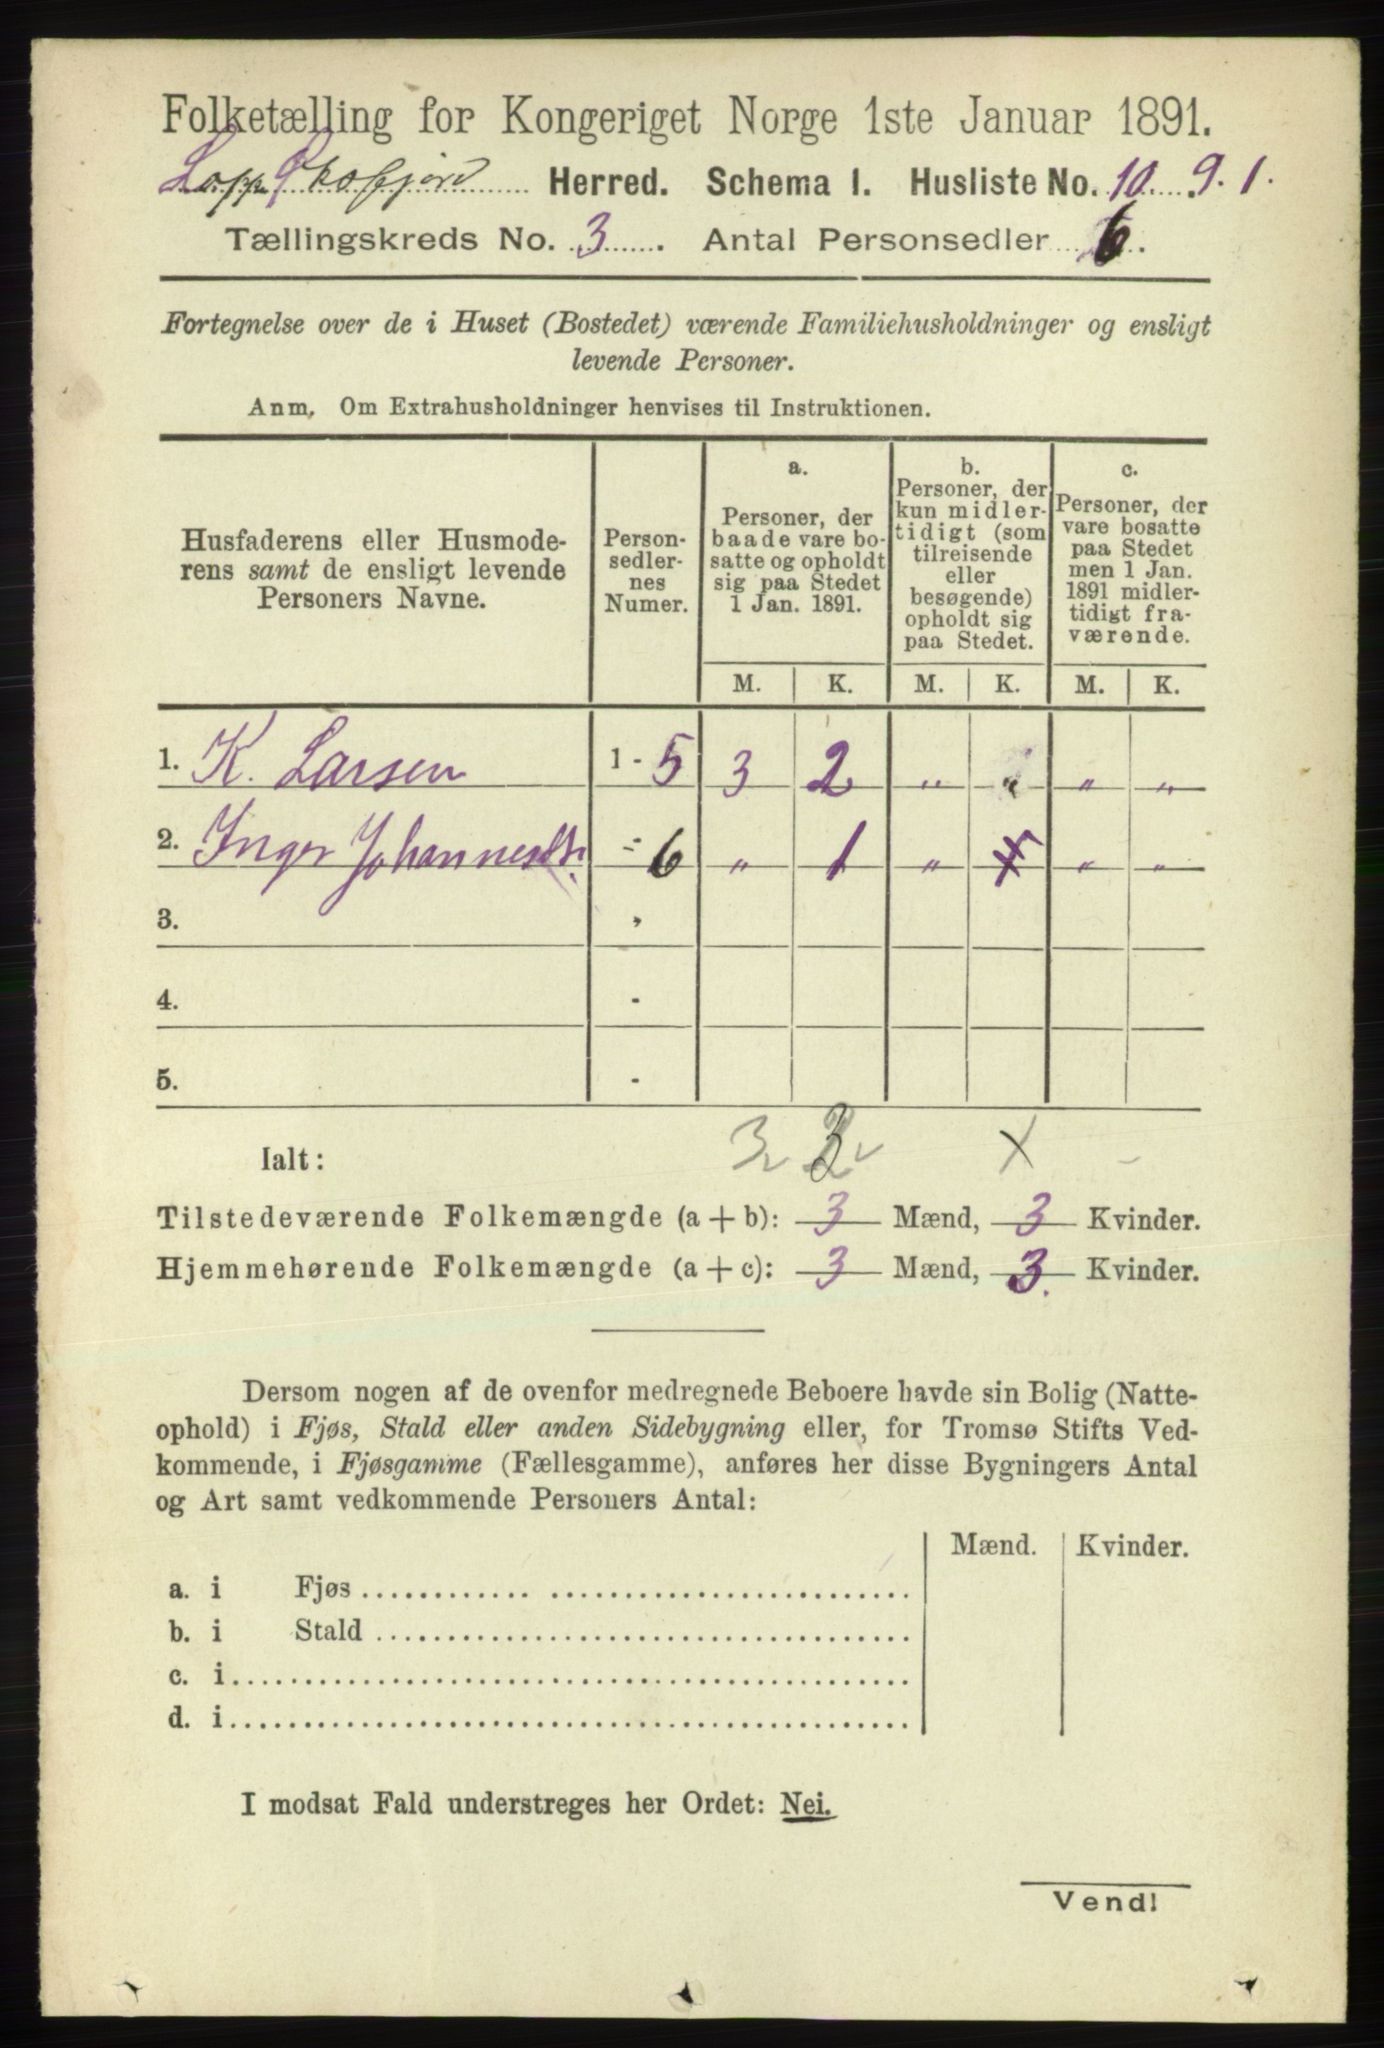 Folketælling for Kongeriget Norge 1ste Januar 1891.
Herred. Schema 1. Husliste No. 10 9.1.
Tællingskreds No. 3. Antal Personsedler 6.
Fortegnelse over de i Huset (Bostedet) værende Familiehusholdninger og ensligt
levende Personer.
Anm. Om Extrahusholdninger henvises til Instruktionen.
Husfaderens eller Husmode-
rens samt de ensligt levende
Personers Navne.
Person-
sedler-
nes
Numer.
a.
Personer, der
baade vare bo-
satte og opholdt
sig paa Stedet
1 Jan. 1891.
b.
Personer, der
kun midler-
tidigt (som
tilreisende
eller
besøgende)
opholdt sig
paa Stedet.
c.
Personer, der
vare bosatte
paa Stedet
men 1 Jan.
1891 midler-
tidigt fra-
værende.
M. K. M. K. M. K.
1. K. Larsen 1 - 5 3 2 „ „ „ „
2. Inger Johannesdtr - 6 „ 1 „ „ „
3.
4. -
5. -
Ialt: 3 3 x -
Tilstedeværende Folkemængde (a + b): 3 Mænd, 3 Kvinder.
Hjemmehørende Folkemængde (a + c): 3 Mænd, 3 Kvinder.
Dersom nogen af de ovenfor medregnede Beboere havde sin Bolig (Natte-
ophold) i Fjøs, Stald eller anden Sidebygning eller, for Tromsø Stifts Ved-
kommende, i Fjøsgamme (Fællesgamme), anføres her disse Bygningers Antal
og Art samt vedkommende Personers Antal:
Mænd. Kvinder.
a. i Fjøs
b. i Stald
c. i
d. i
I modsat Fald understreges her Ordet: Nei.
Vend!